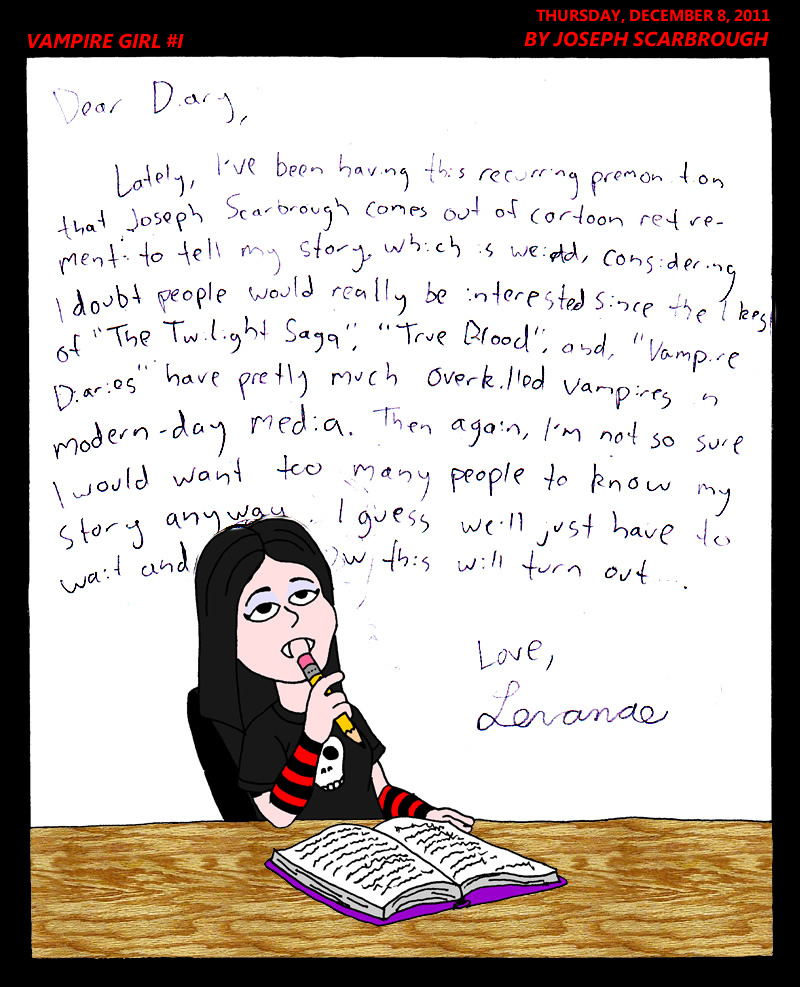 THURSDAY, DECEMBER 8, 2011
VAMPIRE GIRL #1
BY JOSEPH SCARBROUGH
Dear Diary,
Lately, I've been having this recurring premonition
that Joseph Scarbrough comes out of cartoon retire-
ment to tell my story, which is weird, considering
I doubt people would really be interested since the likes
of "The Twilight Saga", "True Blood", and, "Vampire
Diaries" have pretty much overkilled vampires in
modern-day media. Then again, I'm not so sure
I would want too many people to know my
story anyway. I guess we'll just have to
wait and this will turn out....
Love,